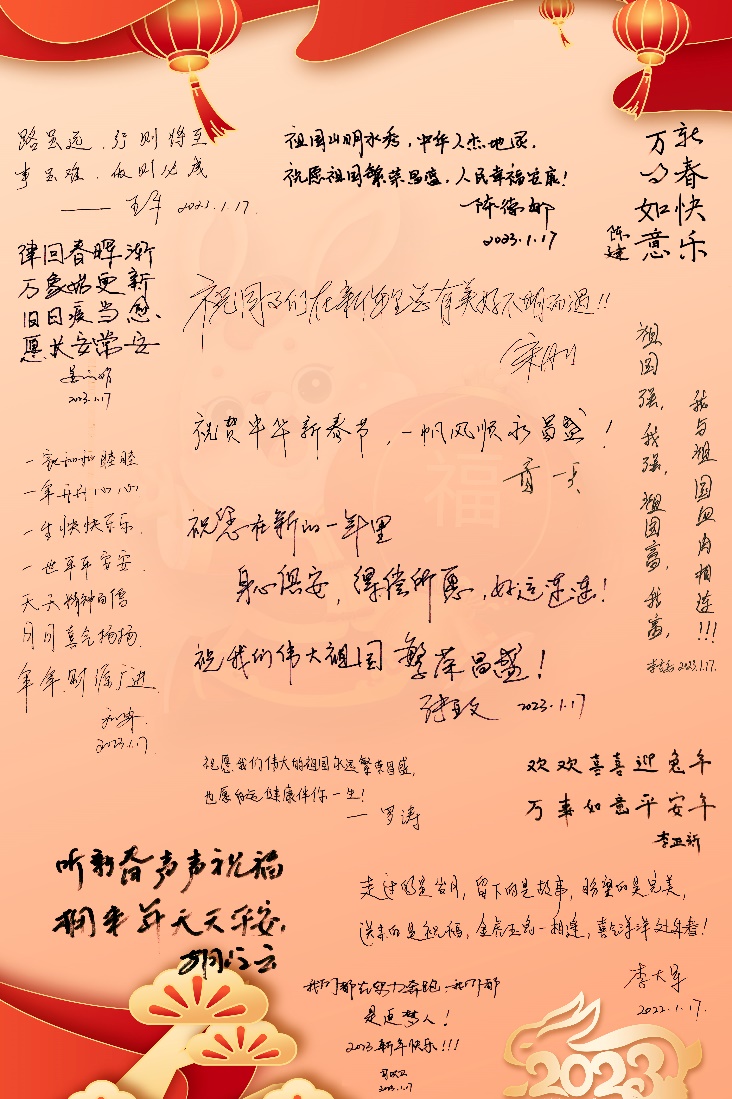 路虽远,行则将至
事虽难,做则必成
2023.1.17.
祖国山明水秀,中华人杰地灵,
祝愿祖国繁荣昌盛,人民幸福安康!
陈德邦
2023.1.17
新春快乐
万事如意
陈建
律回春晖渐
万象始更新
旧日疾当愈
愿长安常安
2023.1.17
祝同事们在新年里总有美好不期而遇!!
宋刚
祝贺中华新春节,一帆风顺永昌盛!
祖国强,我强,祖国富,我富,
我与祖国血肉相连!!!
2023.1.17.
一家和和睦睦
一年开开心心
一生快快乐乐
一世平平安安
天天精神百倍
月月喜气扬扬
年年财源广进
2023.1.17
祝您在新的一年里
身心俱安,得偿所愿,好运连连!
祝我们伟大祖国繁荣昌盛!
2023.1.17
祝愿我们伟大的祖国永远繁荣昌盛,
也愿幸运健康伴你一生!
一罗涛
欢欢喜喜迎兔年
万事如意平安年
李亚新
听新春声声祝福
拥来年天天平安
走过的是岁月,留下的是故事,盼望的是完美,
送来的是祝福,金虎玉兔一相逢,喜气洋洋过新春!
李大军
2022.1.17.
我们都在努力奔跑,我们都
是追梦人!
2023新年快乐!!!
2023.1.17
福
2023